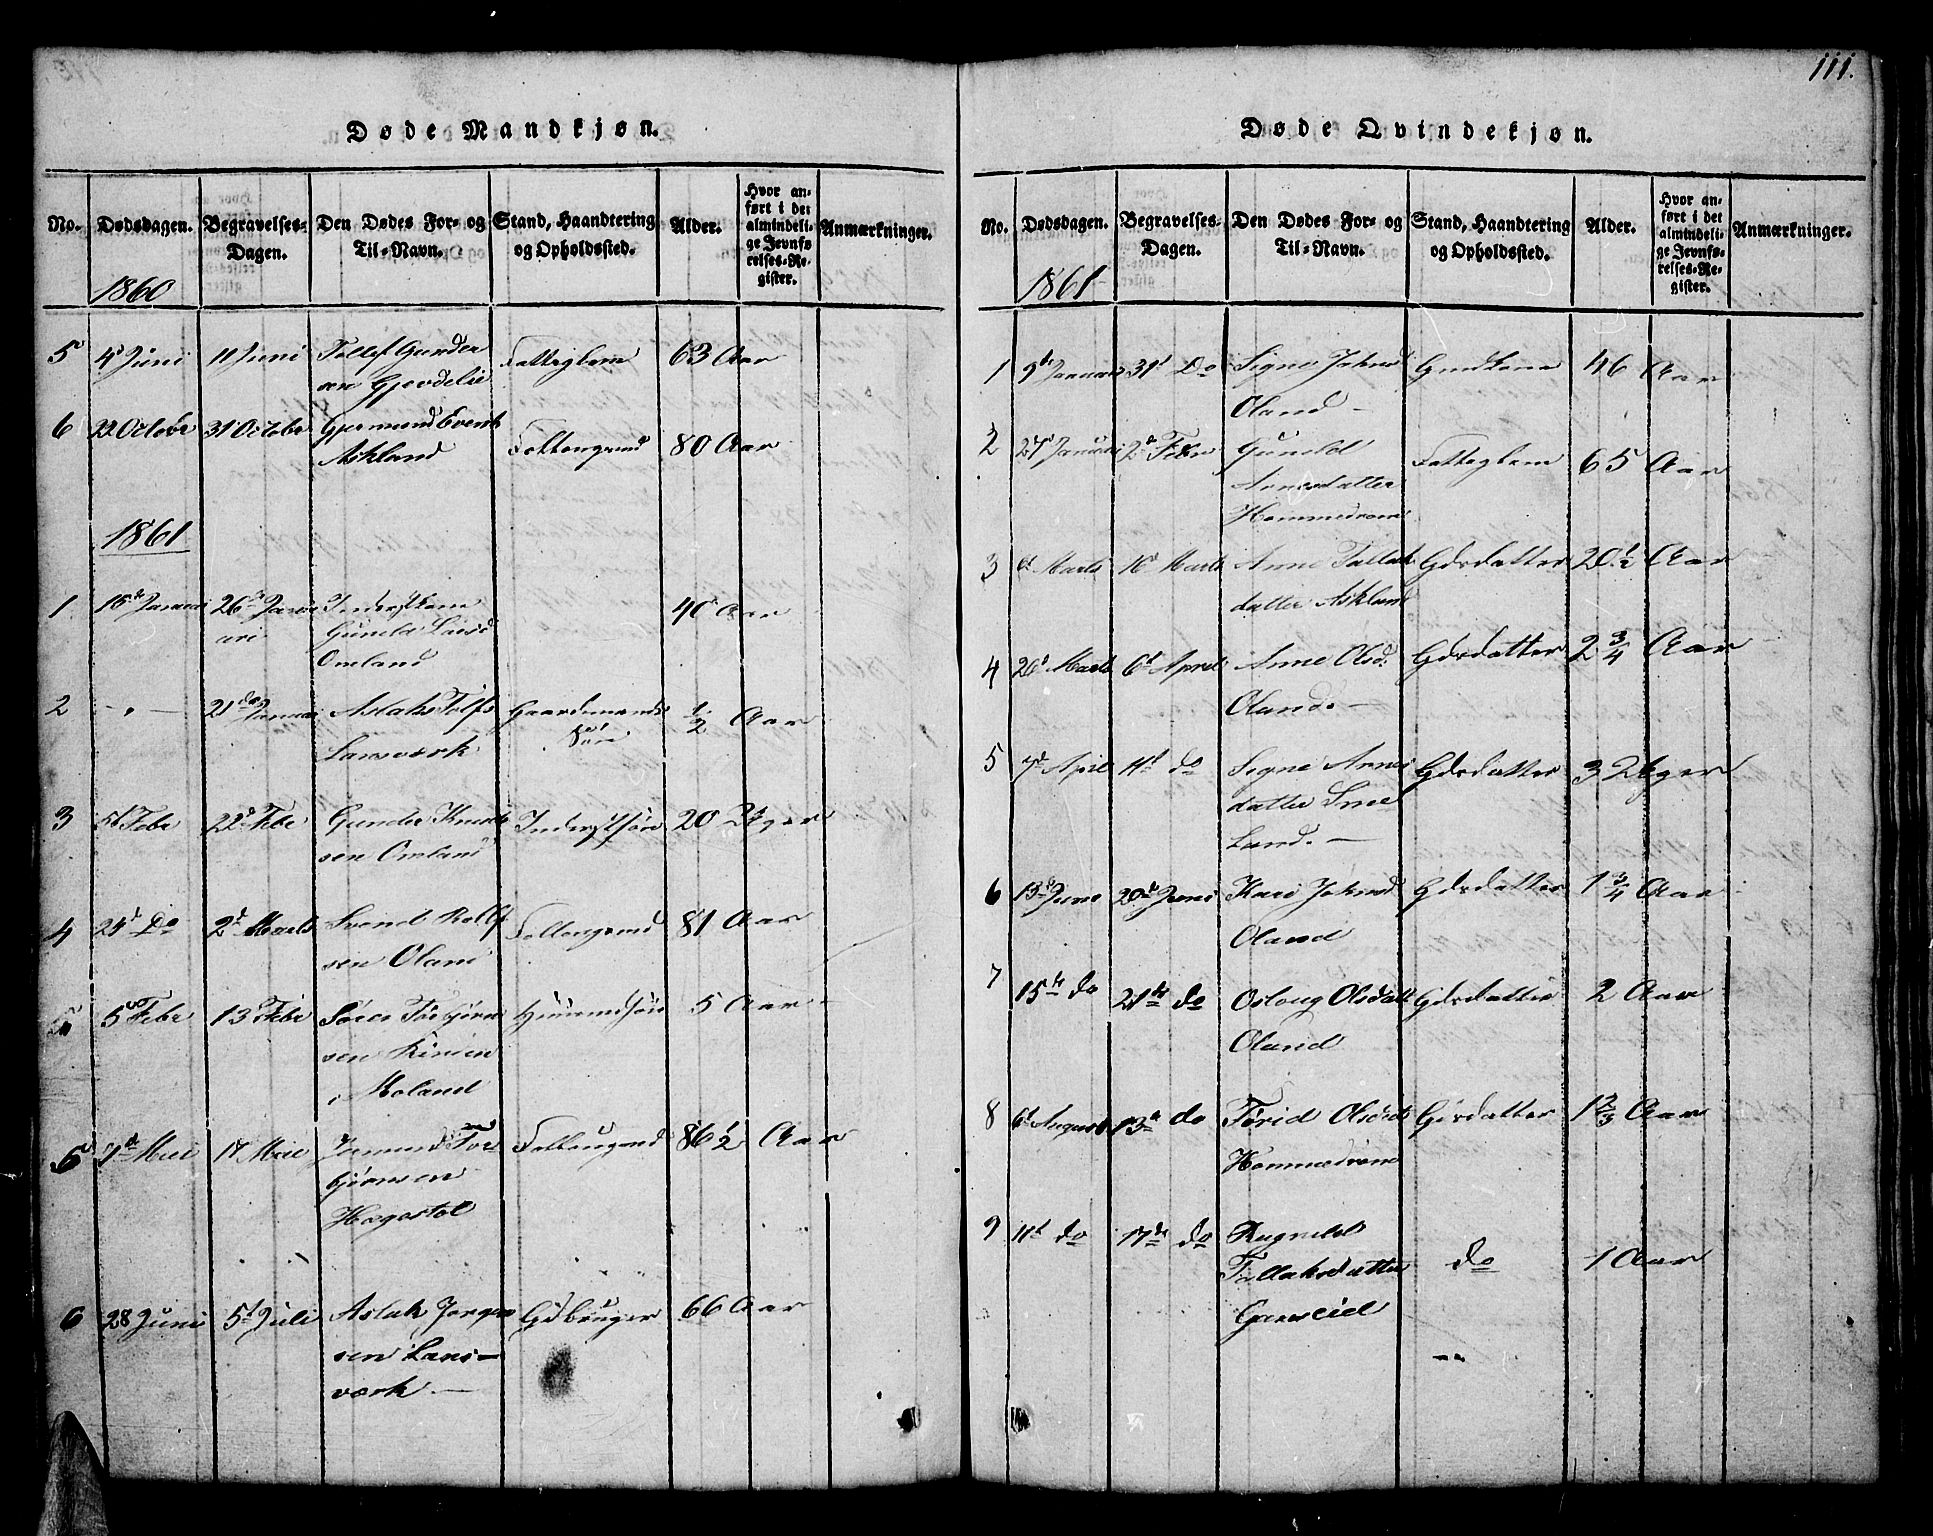 111.
Døde Mandkjøn.
No. Dødsdagen. Begravelses-Dagen. Den Dødes For- og Til-Navn. Stand, Haandtering og Opholdssted. Alder. Hvor anført i det almindelige Jevnførelses-Register. Anmærkninger.
1860
5 4 Juni 11 Juni Tollef Gunder
sen Gjevdelie Fatteglem 63 Aar
6 22 October 31 October Gjermund Events
Askland Follougmd 80 Aar
1861
1. 16 Januar 26 Janu
ari Inderstkone
Gunild Larsd
Omland 40 Aar
2 - " - 21 Januar Aslak Tolfs
Lansværk Gaardmands
Søn 1/2 Aar
3 Febr 22d Febr Gunder Knuds
sen Omland Inderstsøn 20 Uger
4 24d Do 2d Marts Svend Rolfs
sen Oland Follougmd 81 Aar
5 5 Febr 13 Febr Søren Torbjørn
sen
i Moland Huusmdsøn 5 Aar
6 7d Mai 17 Mai Jormund Tor
bjørnsen
Hægestøl Follougmd 86 1/2 Aar
6 28 Juni 5d Juli Aslak Jørgen
sen Lans-
værk - Gdbruger 66 Aar
Døde Qvindekjøn.
No. Dødsdagen. Begravelses-Dagen. Den Dødes For- og Til-Navn. Stand, Haandtering og Opholdssted. Alder. Hvor anført i det almindelige Jevnførelses-Register. Anmærkninger.
1861
1 9d Januar 31d Do Signe Johnsd
Oland - Gmdkone 46 Aar
2 27d Januari 2d Febr Gunild
Arnesdatter
Hommedrom Fatteglem 65 Aar
3 Marts 16d Marts Anne Tallak
datter Askland Gdsdatter 20 1/2 Aar
4 26d Marts 6d April Anne Olsd.
Oland. - Gdsdatter 2 3/4 Aar
5 7d April 11d do Signe Arnes
datter Sme
Land. - Gdsdatter 3 Uger
6 13d Juni 20d Juni Kari Johnsd
Oland Gdsdatter 1 3/4 Aar
7 15d do 21d do Oslaug Olsdatt
Oland Gdsdatter 2 Aar
8 6d August 13d do Torid Olsdt
Hommedrom Gdsdatter 1 2/3 Aar
9 11d do 17d do Ragnild
Tallaksdatter do 1 Aar